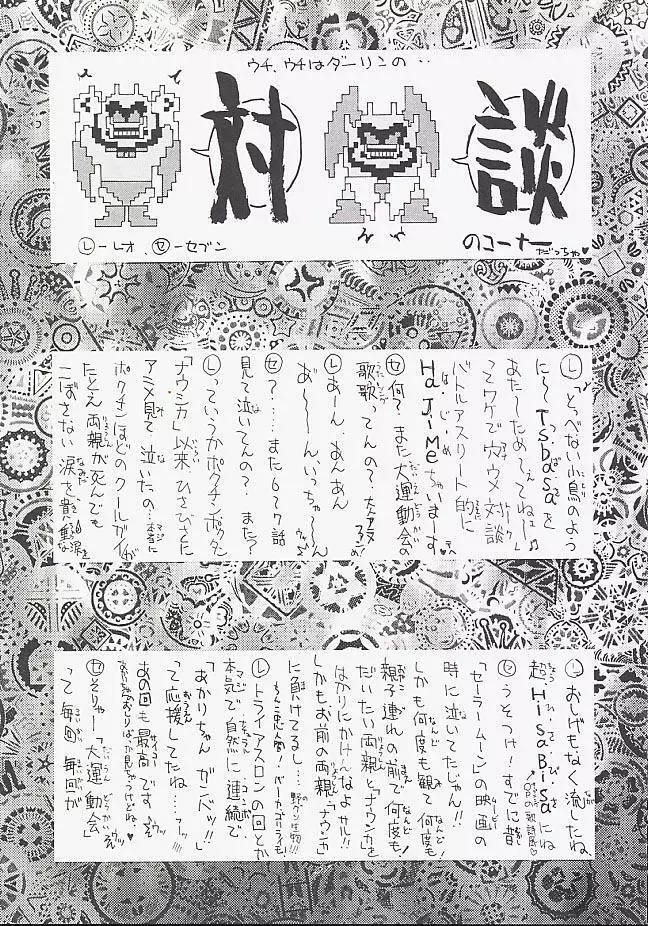 ウチ、ウチはダーリンの‥
対談
Ⓛーレオ、㋝ーセブン
のコーナー
だっちゃ♥
Ⓛ「とべない小鳥のよう
に〜Tsbasaを
あた〜ためてえてねェー」♫
ってワケでウワサ対談
バトルアスリート的に
HaJiMeちゃいまーす
㋝何？また大運動会の
歌歌ってんの？
Ⓛあーん、あんあん
あ〜〜んいっちゃ〜〜ん
㋝？……また6、7話
見て泣いてんの？また？
Ⓛっていうかボクチンボクタン
「ナウシカ」以来ひさびさに
アニメ見て泣いたの。本当に
ボクチンほどのクールガイが
たとえ両親が死んでも
こぼさない涙を
Ⓛおしげもなく流したね、
超HiSaBiSaにね
㋝うそつけ！すでに昔
「セーラームーン」の映画の
時に泣いてたじゃん!!
しかも何度も観て何度も！
親子連れの前で何度も！
だいたい両親と「ナウシカ」を
はかりにかけんなよサル!!
しかもお前の両親「ナウシカ」
に負けてるし…
Ⓛトライアスロンの回とか
本気で自然に連続で
「あかりちゃんガンバッ!!」
って応援してたね…
あの回も最高です
㋝そりゃー「大運動会」
って毎回毎回が